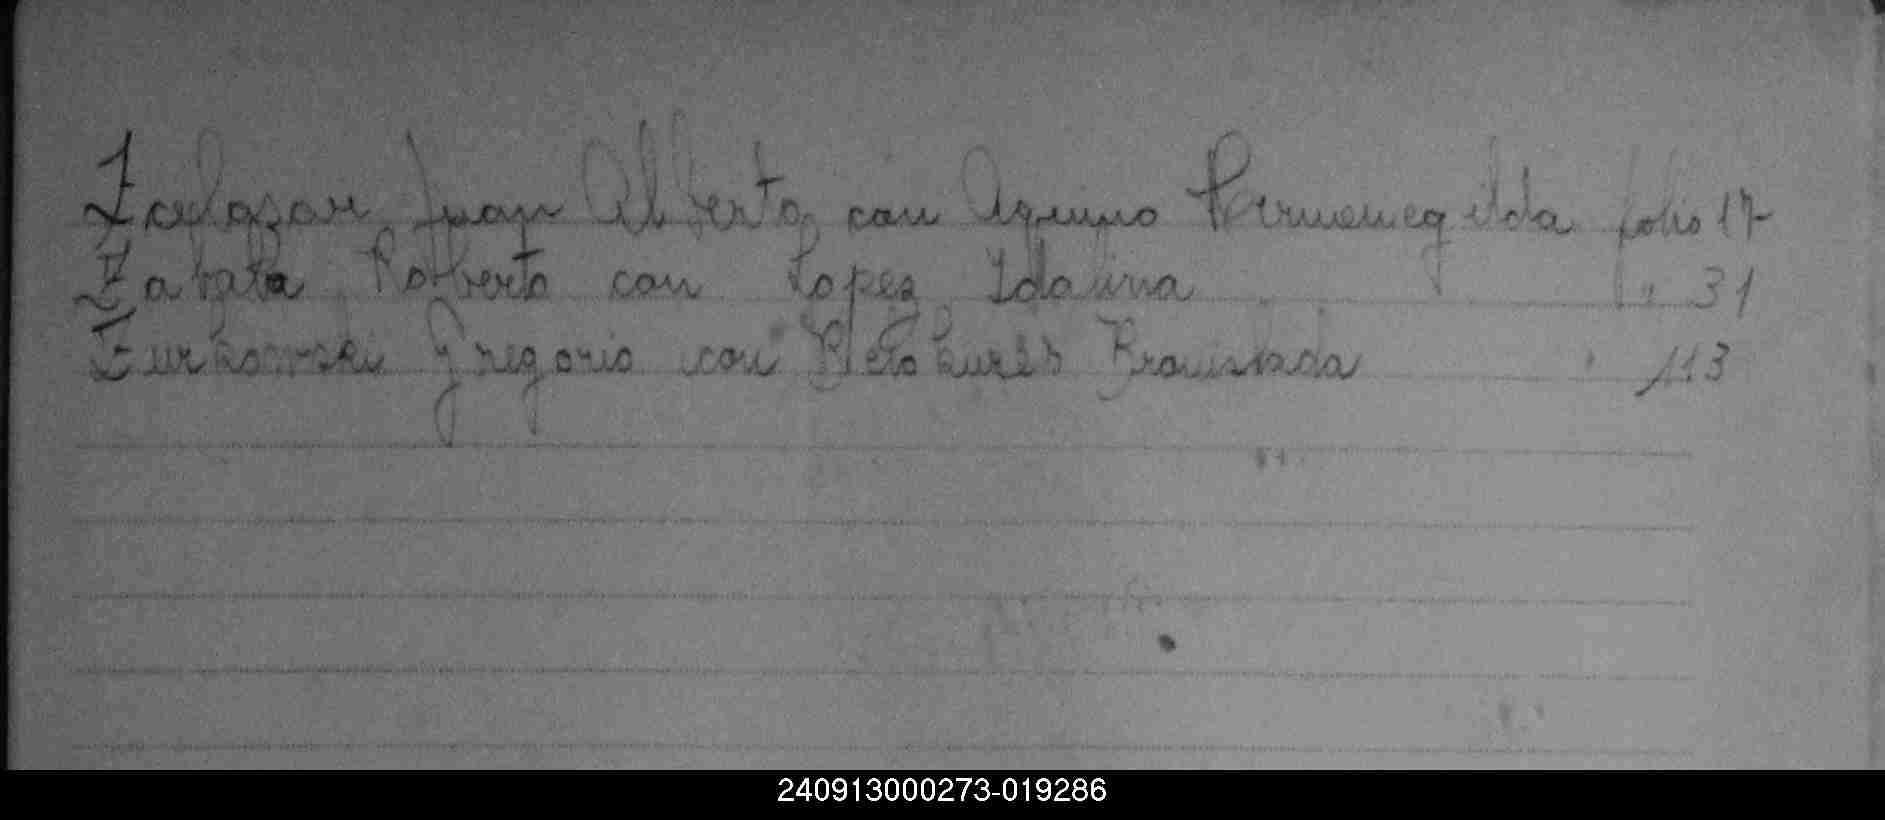 Zalazar Juan Alberto con Aquino Hermenegilda folio 17
Zabala Roberto con Lopez Idalina " 31
Zurkowski Gregorio con Bronislada " 113
240913000273-019286